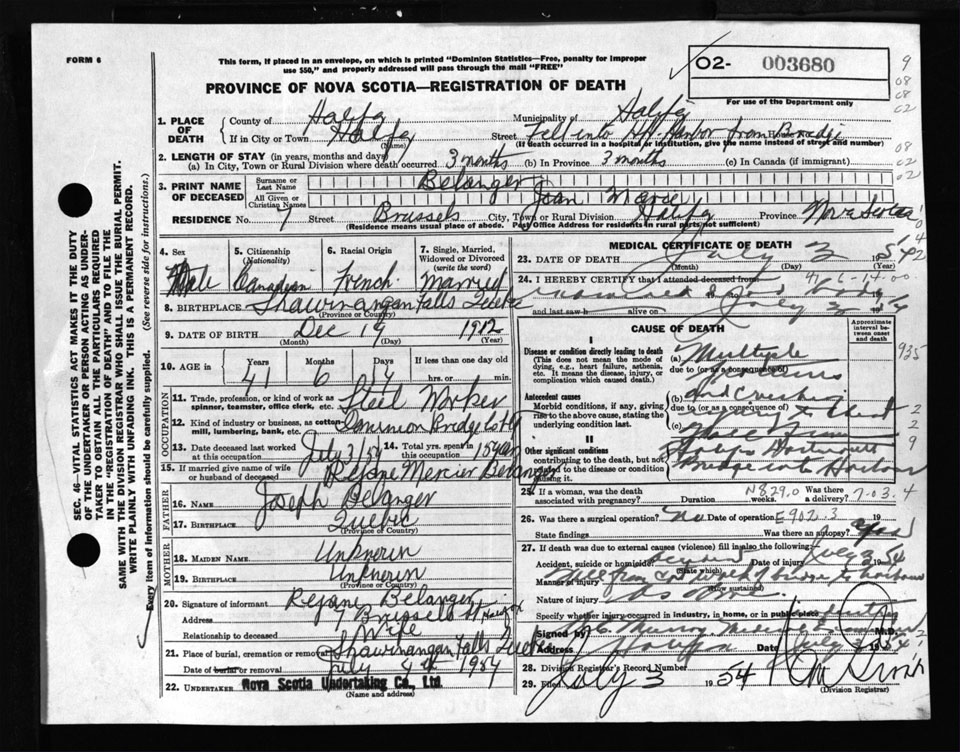 FORM 6
This form, if placed in an envelope, on which is printed "Dominion Statistics—Free, penalty for improper
use $50," and properly addressed will pass through the mail "FREE"
O2- 003680
For use of the Department only
PROVINCE OF NOVA SCOTIA—REGISTRATION OF DEATH
1. PLACE OF DEATH
County of Halifa Municipality of Halifa
If in City or Town Halifa (Name) Street Fell into Harbor from Bridge
(If death occurred in a hospital or institution, give the name instead of street and number)
2. LENGTH OF STAY (in years, months and days)
(a) In City, Town or Rural Division where death occurred 3 months (b) In Province 3 months (c) In Canada (if immigrant)
3. PRINT NAME OF DECEASED
Surname or Last Name Belanger
All Given or Christian Names Jean Marie
RESIDENCE No. 7 Street Brussels City, Town or Rural Division Halifa Province Nova Scotia
(Residence means usual place of abode. Post Office Address for residents in rural parts not sufficient)
4. Sex Male
5. Citizenship (Nationality) Canadian
6. Racial Origin French
7. Single, Married, Widowed or Divorced (write the word) Married
8. BIRTHPLACE Shawinangan Falls Quebec
(Province or Country)
9. DATE OF BIRTH Dec 19 1912
(Month) (Day) (Year)
10. AGE in Years 41 Months 6 Days 14 If less than one day old hrs. or min.
OCCUPATION
11. Trade, profession, or kind of work as spinner, teamster, office clerk, etc. Steel Worker
12. Kind of industry or business, as cotton mill, lumbering, bank, etc. Dominion Bridge Co Ltd
13. Date deceased last worked at this occupation July 3/54
14. Total yrs. spent in this occupation 15 years
15. If married give name of wife or husband of deceased Rejane Mercier Belanger
FATHER
16. Name Joseph Belanger
17. Birthplace Quebec
(Province or Country)
MOTHER
18. MAIDEN NAME Unknown
19. BIRTHPLACE Unknown
(Province or Country)
20. Signature of informant Rejane Belanger
Address 7 Brussels St Halifax
Relationship to deceased Wife
21. Place of burial, cremation or removal Shawinangan Falls Quebec
Date of burial or removal July 4th 1954
22. UNDERTAKER Nova Scotia Undertaking Co., Ltd.
(Name and address)
MEDICAL CERTIFICATE OF DEATH
23. DATE OF DEATH July 3 1954
(Month) (Day) (Year)
24. I HEREBY CERTIFY that I attended deceased from
and last saw h alive on July 3 1954
CAUSE OF DEATH
Approximate interval between onset and death
I
Disease or condition directly leading to death
(This does not mean the mode of dying, e.g., heart failure, asthenia, etc. It means the disease, injury, or complication which caused death.)
(a) Multiple
due to (or as a consequence of)
Antecedent causes
Morbid conditions, if any, giving rise to the above cause, stating the underlying condition last.
(b) and Crushing
due to (or as a consequence of)
(c)
II
Other significant conditions
contributing to the death, but not related to the disease or condition causing it.
Halifax Dartmouth
Bridge into Harbour
935
25. If a woman, was the death associated with pregnancy? Duration weeks. Was there a delivery?
N829.0 7-03.4
26. Was there surgical operation? No Date of operation 19
E902.3
State findings Was there an autopsy? yes
27. If death was due to external causes (violence) fill in also the following:
Accident, suicide or homicide? accident (State which) July 3 1954
Manner of injury Fall from of bridge to harbour (How sustained)
Nature of injury As above
Specify whether injury occurred in industry, in home, or in public place industry
Signed by Murray Medical Examiner M.D.
Address Halifax Date July 3 1954
28. Division Registrar's Record Number
29. Filed July 3 1954
(Division Registrar)
SEC. 46—VITAL STATISTICS ACT MAKES IT THE DUTY
OF THE UNDERTAKER OR PERSON ACTING AS UNDER-
TAKER TO OBTAIN ALL THE PARTICULARS REQUIRED
IN THE "REGISTRATION OF DEATH" AND TO FILE THE
SAME WITH THE DIVISION REGISTRAR WHO SHALL ISSUE THE BURIAL PERMIT.
WRITE PLAINLY WITH UNFADING INK. THIS IS A PERMANENT RECORD.
Every item of information should be carefully supplied. (See reverse side for instructions.)